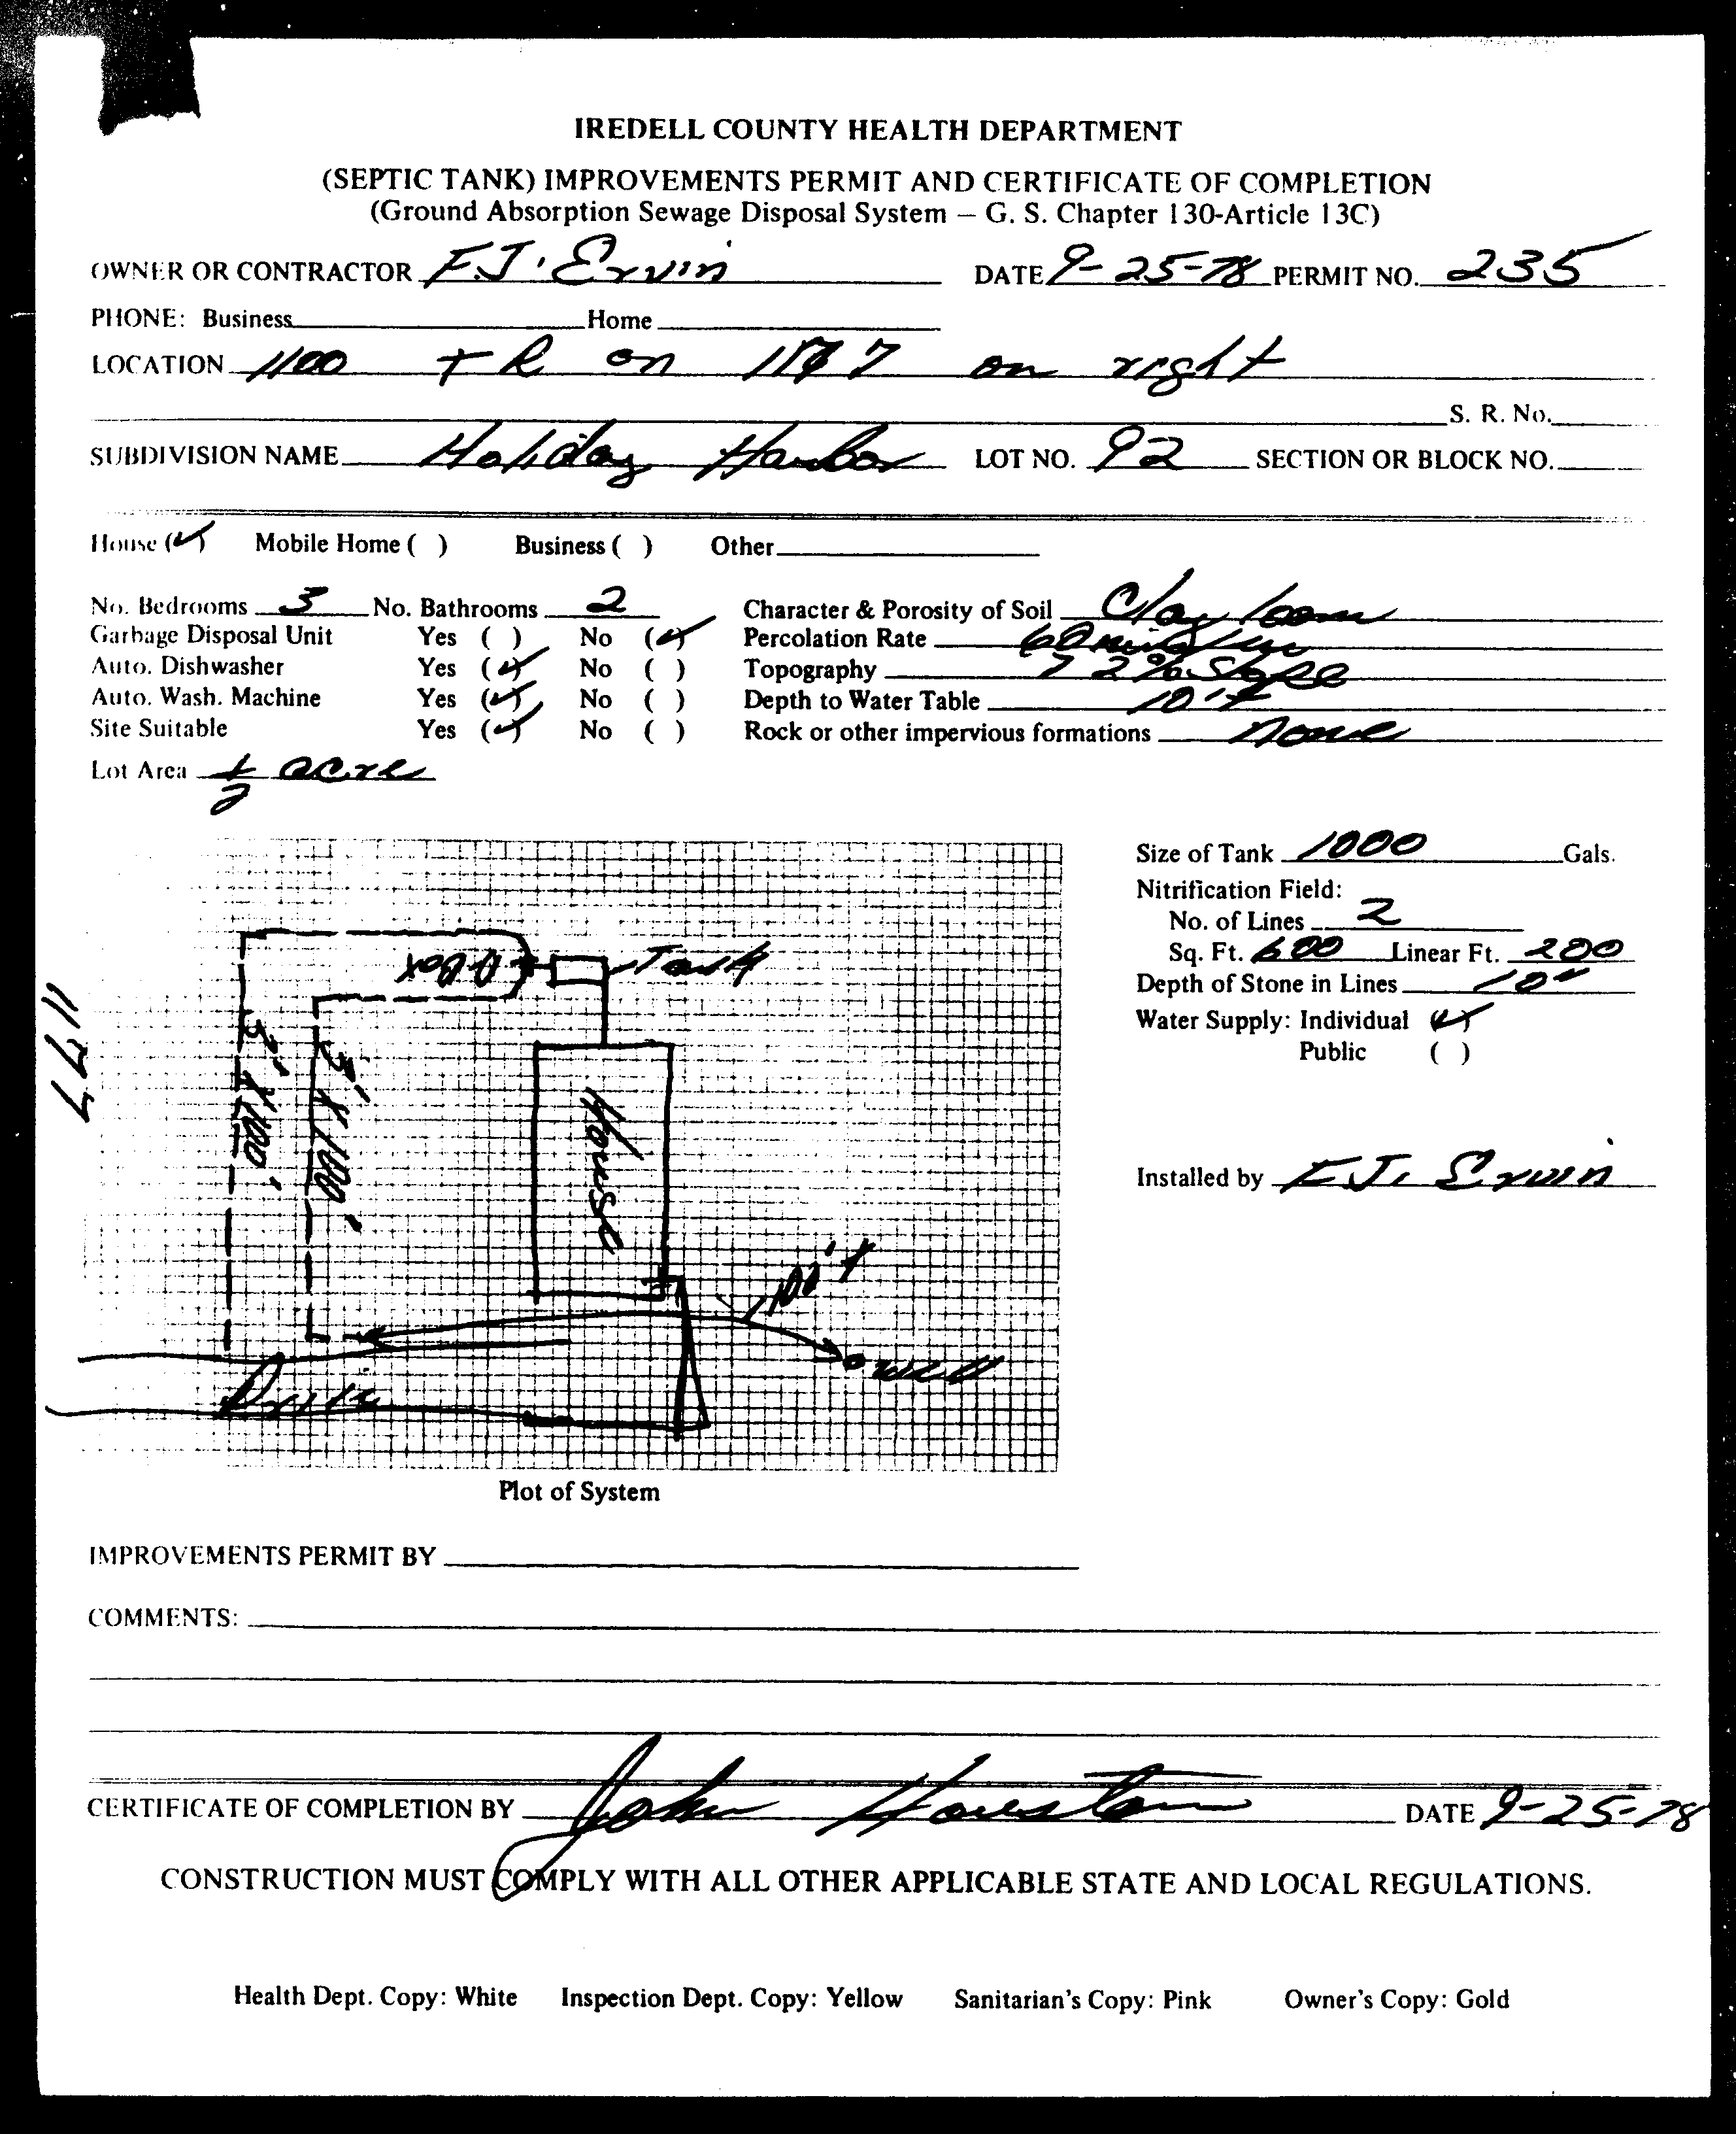 IREDELL COUNTY HEALTH DEPARTMENT
(SEPTIC TANK) IMPROVEMENTS PERMIT AND CERTIFICATE OF COMPLETION
(Ground Absorption Sewage Disposal System — G. S. Chapter 130-Article 13C)
OWNER OR CONTRACTOR F.J. Ervin DATE 9-25-78 PERMIT NO. 235
PHONE: Business Home
LOCATION 1100 T R on 1177 on right
S. R. No.
SUBDIVISION NAME Holiday Harbor LOT NO. 92 SECTION OR BLOCK NO.
House (✓) Mobile Home ( ) Business ( ) Other
No. Bedrooms 3 No. Bathrooms 2 Character & Porosity of Soil Clay loam
Garbage Disposal Unit Yes ( ) No (✓) Percolation Rate 60 min/in
Auto. Dishwasher Yes (✓) No ( ) Topography 7 2% Slope
Auto. Wash. Machine Yes (✓) No ( ) Depth to Water Table 10'+
Site Suitable Yes (✓) No ( ) Rock or other impervious formations none
Lot Area 1/2 acre
Size of Tank 1000 Gals.
Nitrification Field:
No. of Lines 2
Sq. Ft. 600 Linear Ft. 200
Depth of Stone in Lines 10"
Water Supply: Individual (✓)
Public ( )
Installed by F.J. Ervin
D-Box Tank
1177
3' X 100'
3' X 100'
House
100'+
well
Drive
Plot of System
IMPROVEMENTS PERMIT BY
COMMENTS:
CERTIFICATE OF COMPLETION BY John Houston DATE 9-25-78
CONSTRUCTION MUST COMPLY WITH ALL OTHER APPLICABLE STATE AND LOCAL REGULATIONS.
Health Dept. Copy: White Inspection Dept. Copy: Yellow Sanitarian's Copy: Pink Owner's Copy: Gold